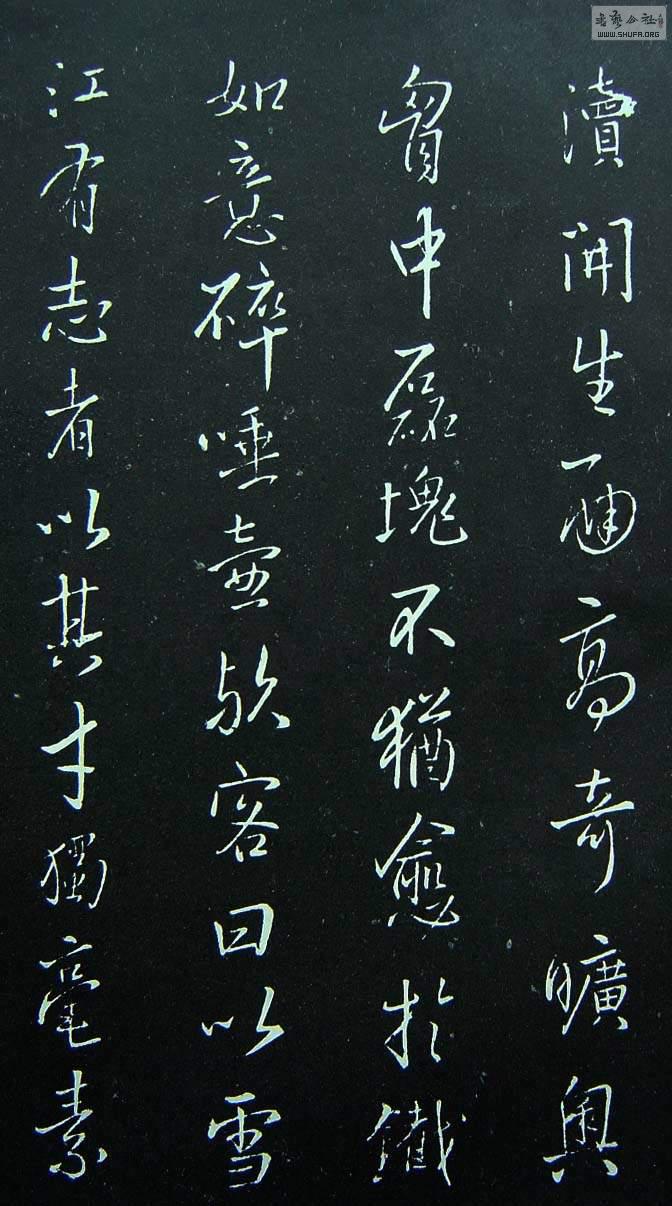 瀆開生面高奇曠奥
胷中磊塊不猶愈於鐵
如意碎唾壺歟客曰以雪
江有志者以其才獨毫素
书艺公社
WWW.SHUFA.ORG